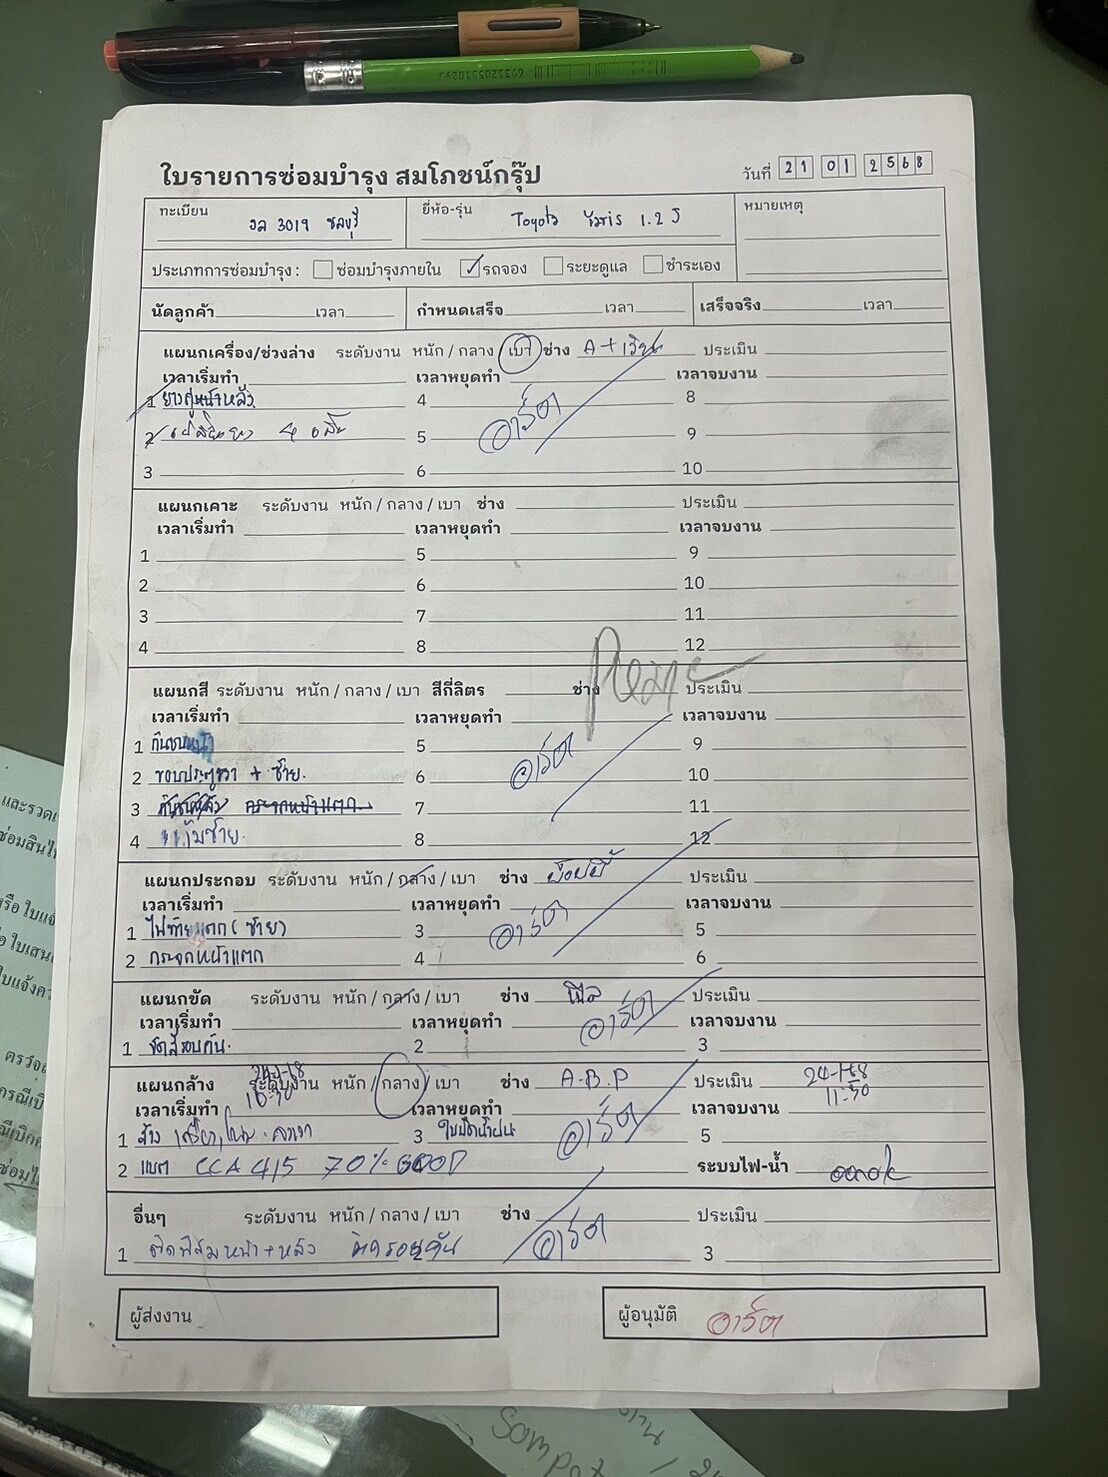 ใบรายการซ่อมบำรุง สมโภชน์กรุ๊ป
วันที่ 21 01 2568
ทะเบียน 3019 ชลบุรี ยี่ห้อ-รุ่น Toyota ยาris 1.2 J หมายเหตุ
ประเภทการซ่อมบำรุง : ซ่อมบำรุงภายใน ✓ รถจอง ระยะดูแล ชำระเอง
นัดลูกค้า เวลา กำหนดเสร็จ เวลา เสร็จจริง เวลา
แผนกเครื่อง/ช่วงล่าง ระดับงาน หนัก / กลาง / เบา ช่าง A + ประเมิน
เวลาเริ่มทำ เวลาหยุดทำ เวลาจบงาน
1 ยางคู่หน้าหลัง 4 8
2 4 5 9
3 6 10
อาร์ต
แผนกเคาะ ระดับงาน หนัก / กลาง / เบา ช่าง ประเมิน
เวลาเริ่มทำ เวลาหยุดทำ เวลาจบงาน
1 5 9
2 6 10
3 7 11
4 8 12
แผนกสี ระดับงาน หนัก / กลาง / เบา สีกี่ลิตร ช่าง ประเมิน
เวลาเริ่มทำ เวลาหยุดทำ เวลาจบงาน
1 กันชนหน้า 5 9
2 ขอบประตูขวา + ซ้าย. 6 10
3 กันชนหลัง กระจกหน้าแตก 7 11
4 แก้มซ้าย. 8 12
อาร์ต
แผนกประกอบ ระดับงาน หนัก / กลาง / เบา ช่าง ประเมิน
เวลาเริ่มทำ เวลาหยุดทำ เวลาจบงาน
1 ไฟท้ายแตก (ซ้าย) 3 5
2 กระจกหน้าแตก 4 6
อาร์ต
แผนกขัด ระดับงาน หนัก / กลาง / เบา ช่าง ประเมิน
เวลาเริ่มทำ เวลาหยุดทำ เวลาจบงาน
1 ขัดสีรอบคัน. 2 3
อาร์ต
แผนกล้าง ระดับงาน หนัก / กลาง / เบา ช่าง A.B.P ประเมิน 24-1-68
เวลาเริ่มทำ เวลาหยุดทำ เวลาจบงาน 11:30
1 ล้าง 3 ใบปัดน้ำฝน 5
2 แบต CCA 415 70% GOOD ระบบไฟ-น้ำ
อาร์ต
อื่นๆ ระดับงาน หนัก / กลาง / เบา ช่าง ประเมิน
1 ติดฟิล์มหน้า + หลัง ติดรอบคัน 3
อาร์ต
ผู้ส่งงาน ผู้อนุมัติ อาร์ต